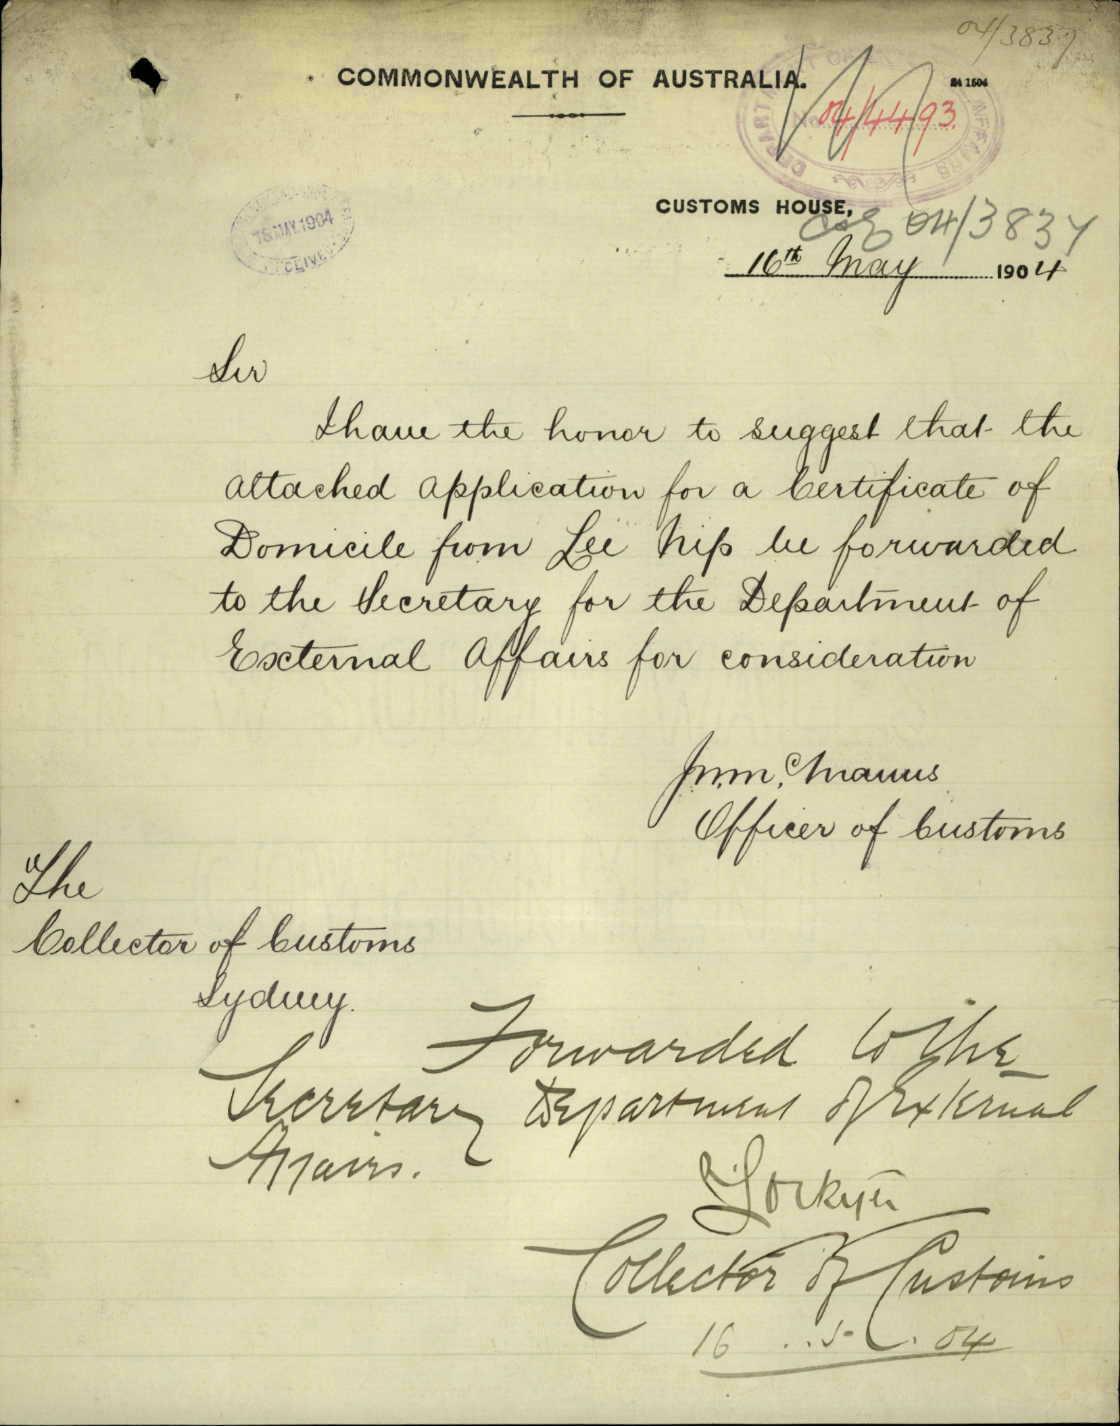 04/3837
COMMONWEALTH OF AUSTRALIA.
SA 1504
04/4493.
CUSTOMS HOUSE,
04/3837
16th May 1904
18 MAY 1904
Sir
I have the honor to suggest that the
attached application for a Certificate of
Domicile from Lee Nip be forwarded
to the Secretary for the Department of
External Affairs for consideration
Officer of Customs
The
Collector of Customs
Sydney.
Forwarded to the
Secretary Department of External
Affairs.
Lockyer
Collector of Customs
16 . . 5 . 04